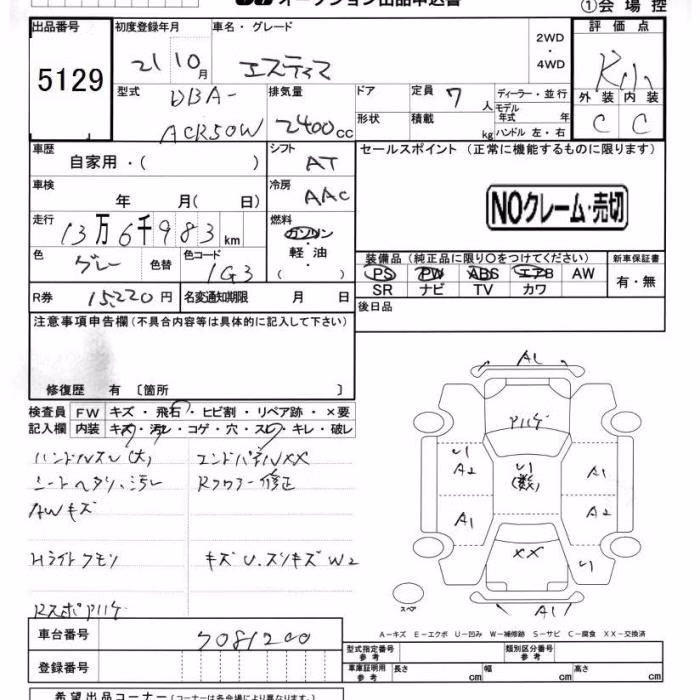 オークション出品申込書
①会場控
出品番号
5129
初度登録年月
21 10月
車名・グレード
エスティマ
2WD
・
4WD
評価点
R小
外装 内装
C C
型式
DBA-
ACR50W
排気量
2400cc
ドア
形状
定員 7人
積載 kg
ディーラー・並行
モデル年式 年
ハンドル 左・右
車歴
自家用・( )
シフト
AT
セールスポイント (正常に機能するものに限ります)
車検
年 月( 日)
冷房
AAC
NOクレーム・売切
走行
13万6千983km
燃料
ガソリン
・
軽油
( )
色 グレー 色替
色コード 1G3
装備品(純正品に限り〇をつけてください)
PS PW ABS エアB AW
SR ナビ TV カワ
新車保証書
有・無
R券 15220円
名変通知期限 月 日
後日品
注意事項申告欄(不具合内容等は具体的に記入して下さい)
修復歴 有〔箇所 〕
検査員記入欄
FW キズ・飛石・ヒビ割・リペア跡・×要
内装 キズ・汚れ・コゲ・穴・スレ・キレ・破レ
ハンドルスレ(大)
シートヘタリ、汚レ
AWキズ
Hライトクモリ
RスポPハゲ
エンドパネルXX
Rフロアー修正
キズU.スリキズW2
A1
Pハゲ
U1
A2
U1
(数)
A1
A1
A2
XX
U1
A1
スペア
A-キズ E-エクボ U-凹み W-補修跡 S-サビ C-腐食 XX-交換済
車台番号
7081200
登録番号
型式指定番号 参考
類別区分番号 参考
車庫証明用 参考
長さ cm
幅 cm
高さ cm
希望出品コーナー(コーナーは各会場により異なります)